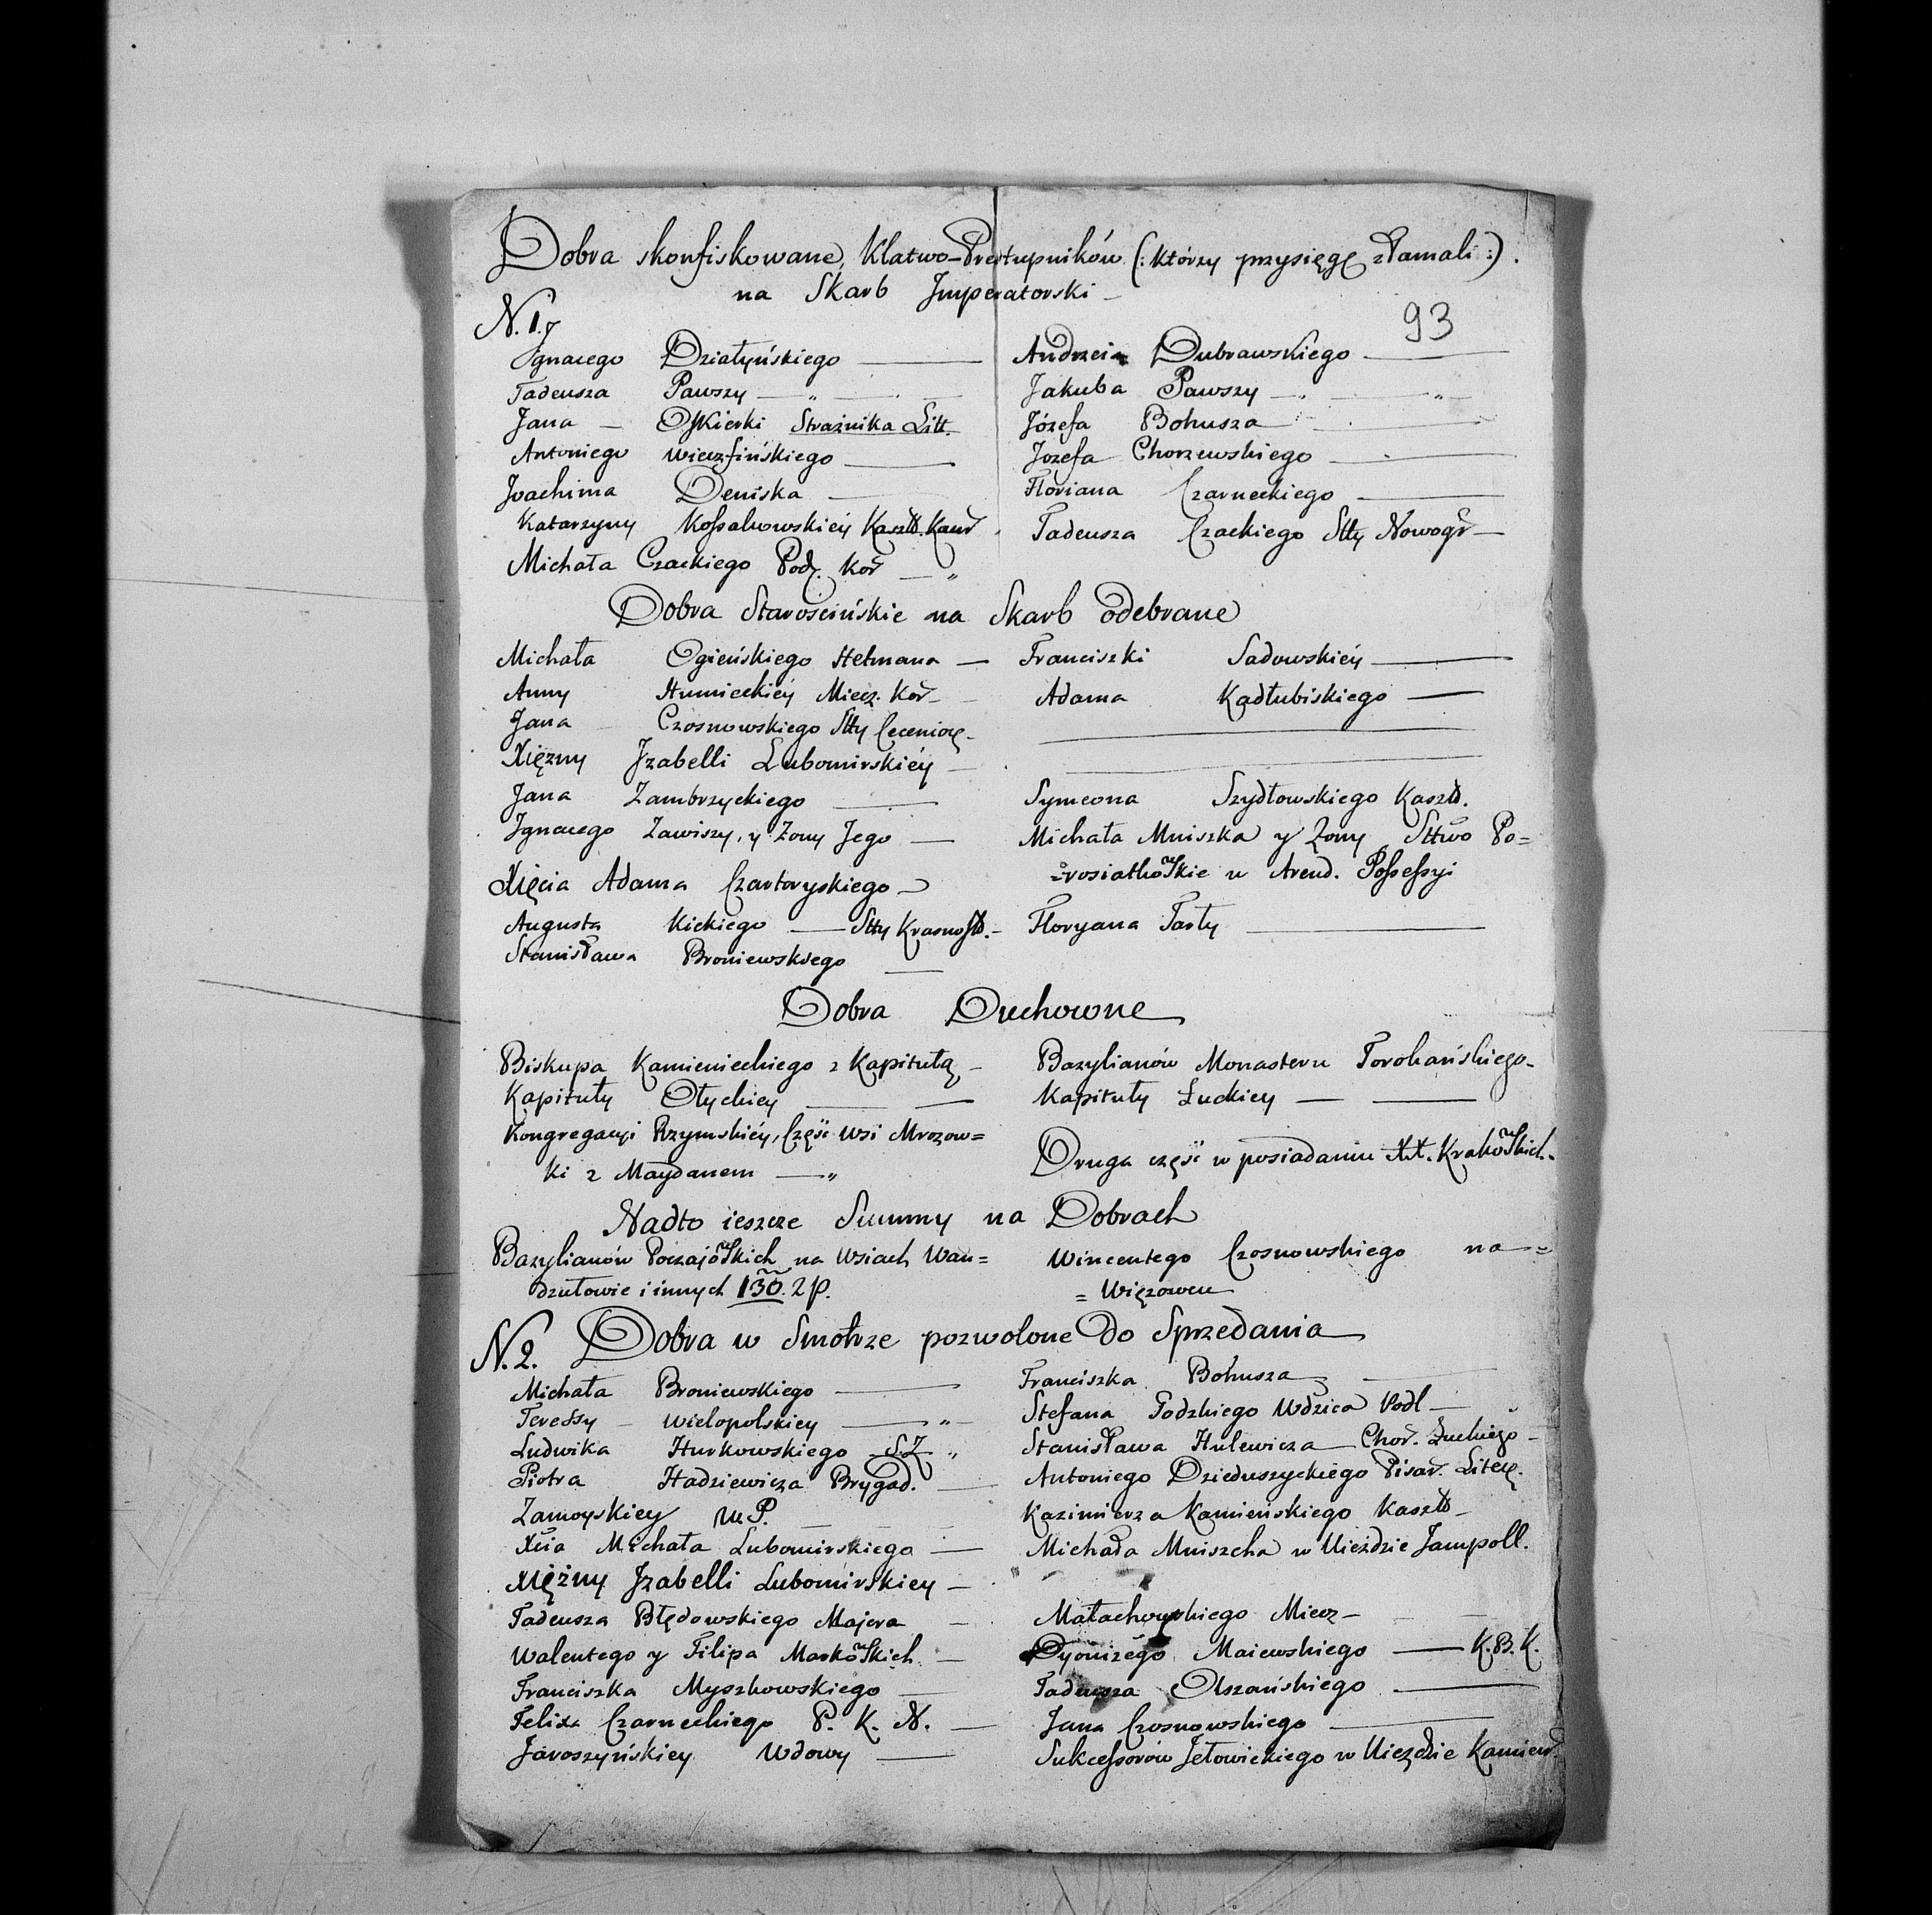 Dobra skonfiskowane, Klatwo-Prestupników (: którzy przysięgę złamali :).
na Skarb Jmperatorski —
N. 1.
93
Jgnacego Działyńskiego — Andrzeia Dubrawskiego —
Tadeusza Pawszy — Jakuba Pawszy —
Jana — Oskierki Strażnika Litt. Józefa Bohusza
Antoniego Wieczfińskiego — Jozefa Chorzewskiego —
Joachima Deniska — Floriana Czarneckiego —
Katarzyny Kossakowskiey Kaszt. Kam Tadeusza Czackiego Stty Nowogr —
Michała Czackiego Podcz. Kor —
Dobra Starościńskie na Skarb odebrane
Michała Ogieńskiego Hetmana — Franciszki Sadowskiéy —
Anny Humieckiéy Miecz. Kor — Adama Kadłubiskiego —
Jana Czosnowskiego Stty
Xiężny Jzabelli Lubomirskiéy —
Jana Zambrzyckiego — Symeona Szydłowskiego Kaszt.
Jgnacego Zawiszy, y Żony Jego — Michała Mniszka y Żony Sttwo Po=
Xięcia Adama Czartoryskiego — =rosiatkowskie w Arend. Possessyi
Augusta Kickiego — Stty Krasnost. — Floryana Tarły —
Stanisława Broniewskiego —
Dobra Duchowne
Biskupa Kamienieckiego z Kapitułą — Bazylianów Monasteru Torokańskiego —
Kapituły Ołyckiey — Kapituły Łuckiey —
Kongregacyi Rzymskiéy, Część Wsi Mrozow=
ki z Maydanem — Druga część w posiadaniu XX. Krakowskich.
Nadto ieszcze Summy na Dobrach
Bazylianów Poczajowskich na Wsiach Wan= Wincentego Czosnowskiego na =
dzułowie i innych 130. zp. = Więzowcu
N. 2. Dobra w Smotrze pozwolone do Sprzedania
Michała Broniewskiego — Franciszka Bohusza —
Teressy — Wielopolskiey — Stefana Godzkiego Wdzica Podl —
Ludwika Hurkowskiego S.Z. Stanisława Hulewicza Chor. Łuckiego —
Piotra Hadziewicza Brygad. — Antoniego Dzieduszyckiego Pisar. Litew.
Zamoyskiey W.P. Kazimierza Kamieńskiego Kaszt —
Xcia Michała Lubomirskiego — Michała Mniszcha w Uieździe Jampoll.
Xiężny Jzabelli Lubomirskiey —
Tadeusza Błędowskiego Majora — Małachowskiego Miecz —
Walentego y Filipa Markowskich — Dyonizego Maiewskiego — K.B.K.
Franciszka Myszkowskiego — Tadeusza Olszańskiego —
Felixa Czarneckiego P. K. N. — Jana Czosnowskiego —
Jaroszyńskiey Wdowy — Sukcessorów Jełowickiego w Uieździe Kamien.